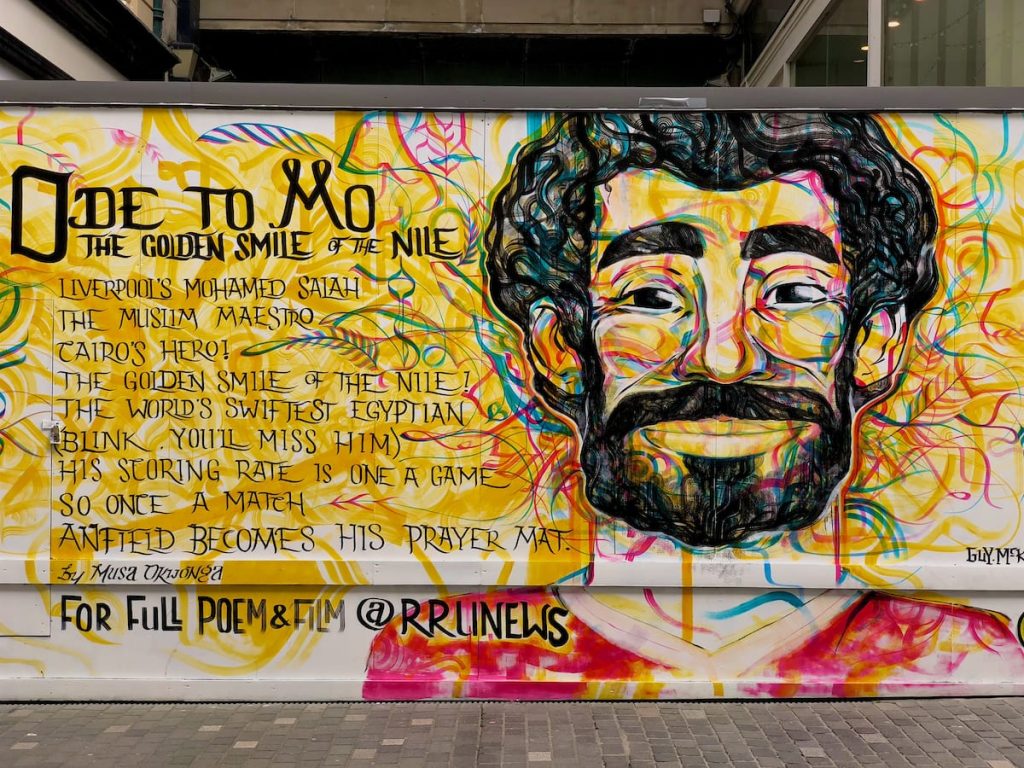 ODE TO MO
THE GOLDEN SMILE OF THE NILE
LIVERPOOL'S MOHAMED SALAH
THE MUSLIM MAESTRO
CAIRO'S HERO!
THE GOLDEN SMILE OF THE NILE!
THE WORLD'S SWIFTEST EGYPTIAN
(BLINK. YOU'LL MISS HIM)
HIS SCORING RATE IS ONE A GAME
SO ONCE A MATCH
ANFIELD BECOMES HIS PRAYER MAT.
by Musa Okwonga
FOR FULL POEM & FILM @RRUNEWS
GUY.McK